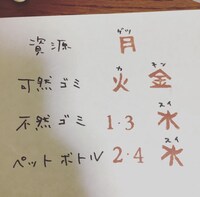 資源 月 ゲツ
可然ゴミ 火 カ 金 キン
不然ゴミ 1・3 水 スイ
ペットボトル 2・4 水 スイ